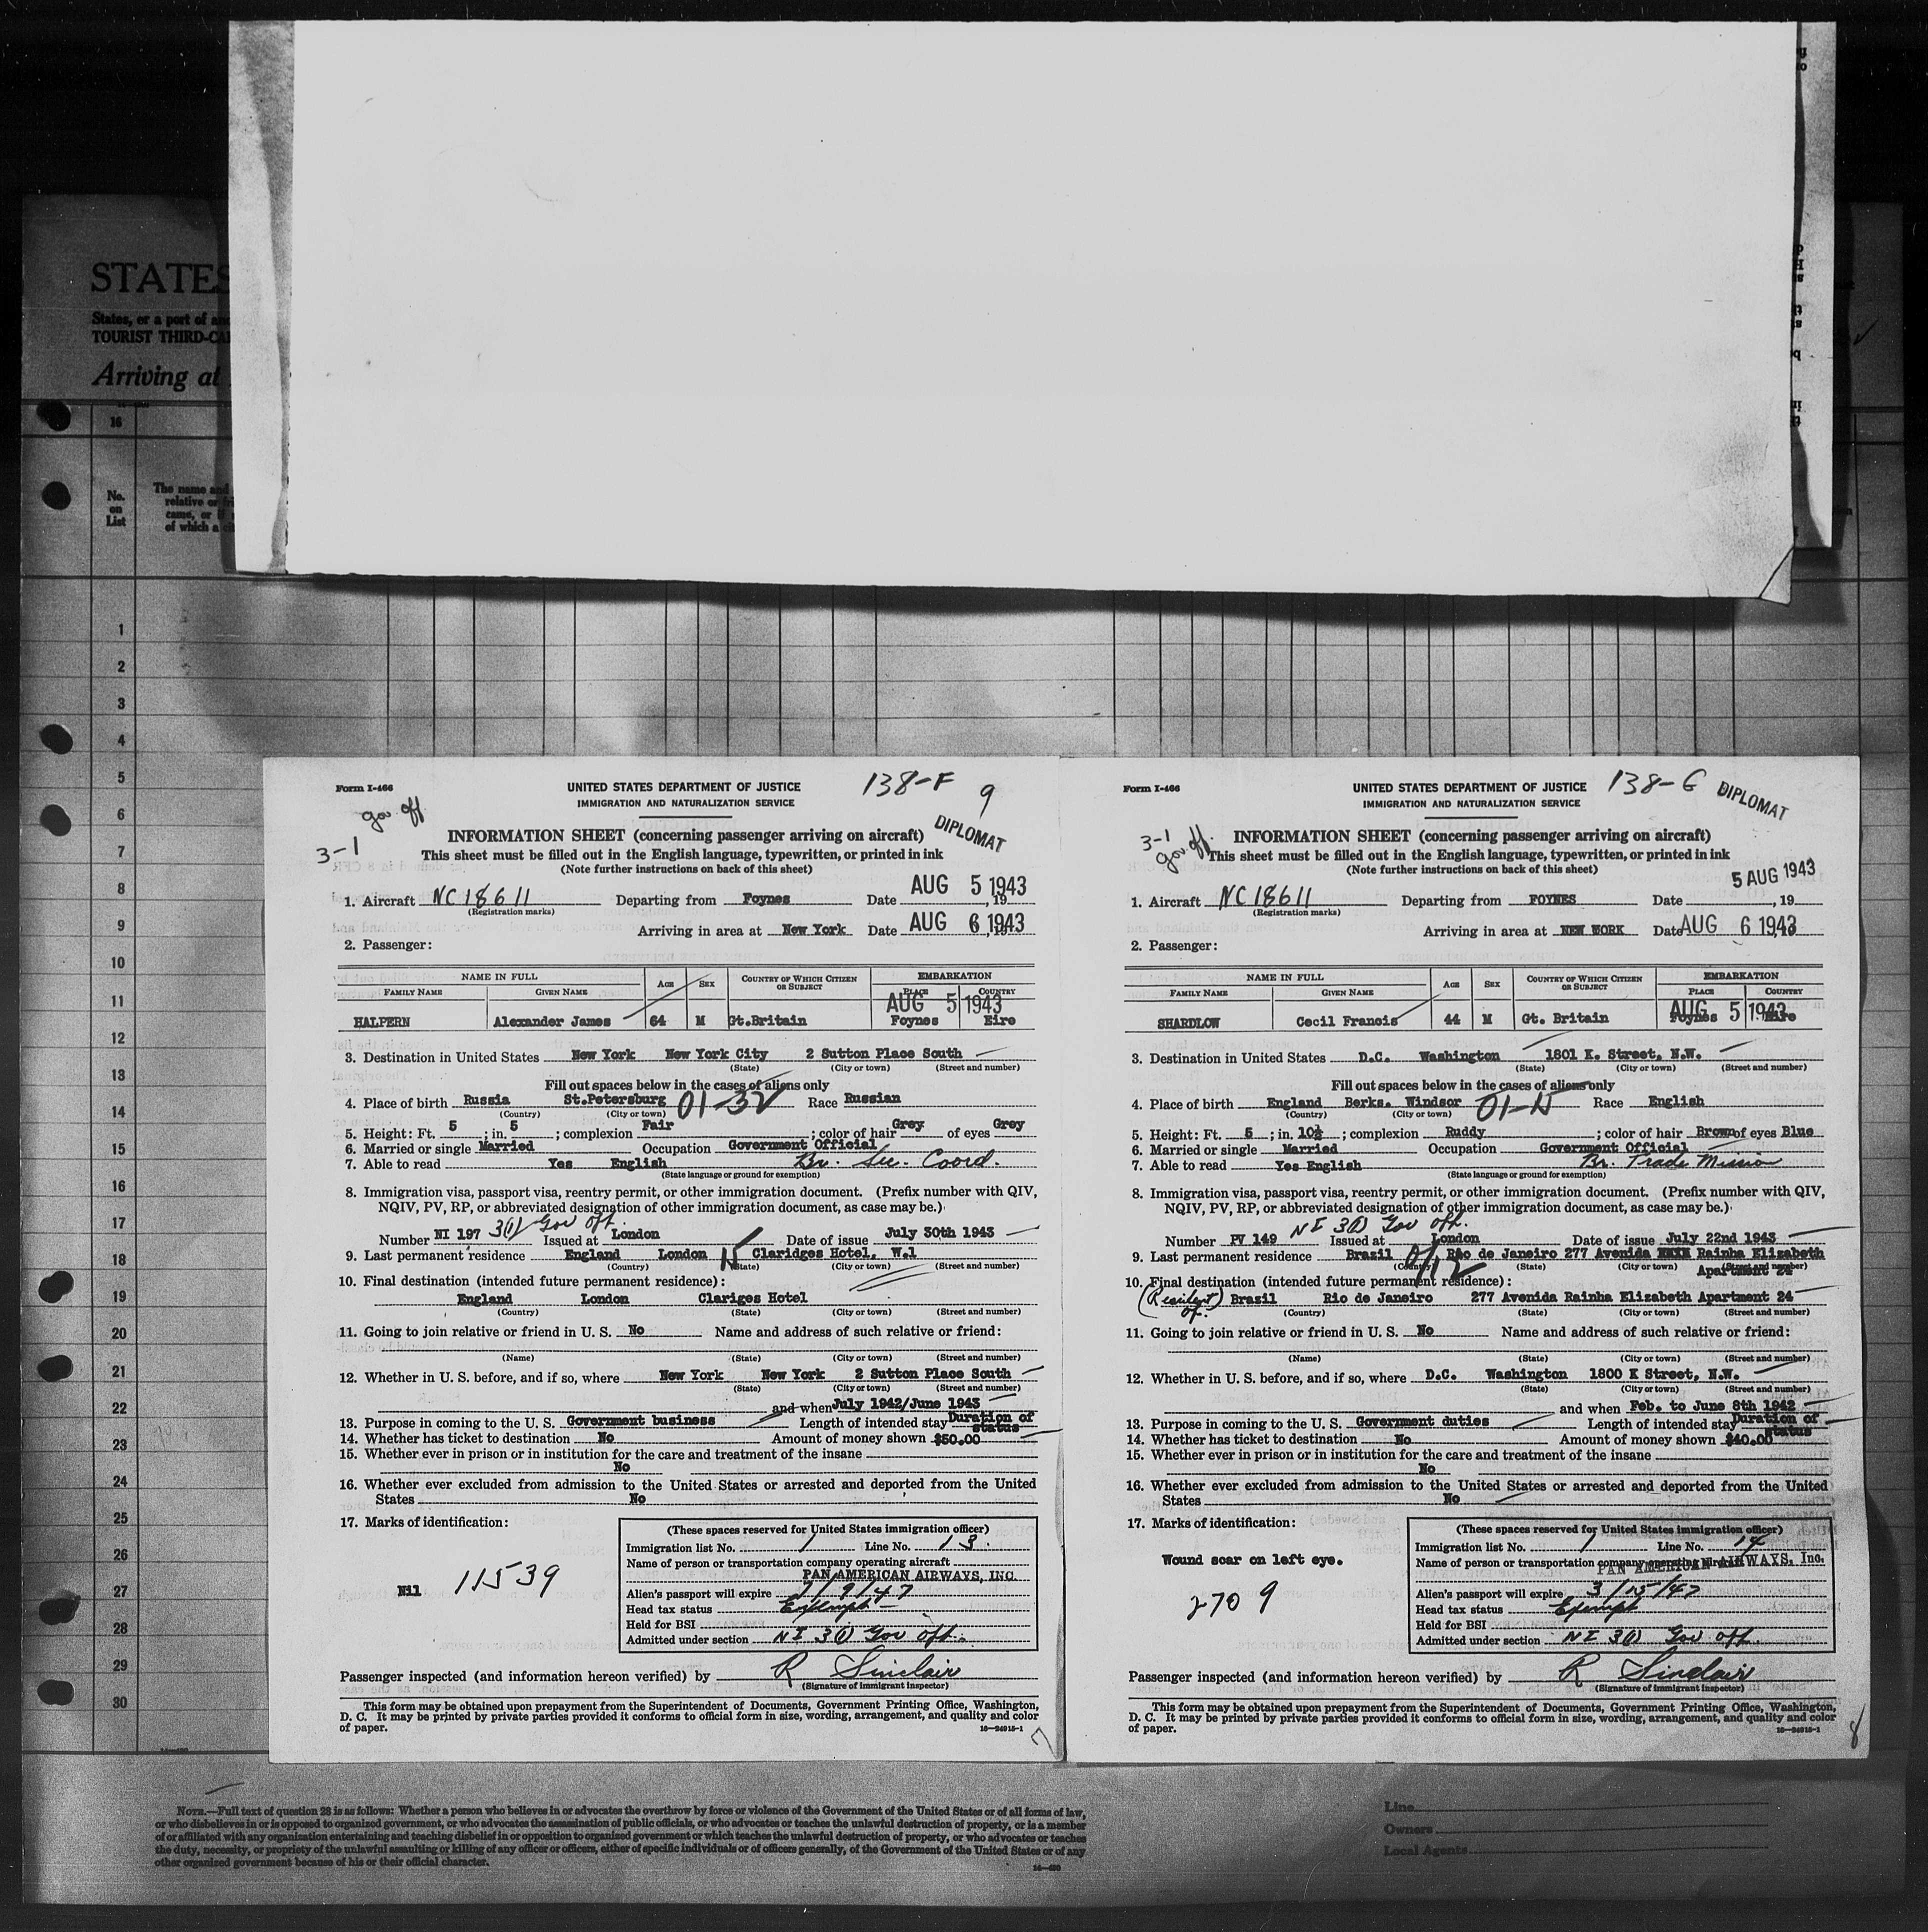 STATES
States, or a port of
TOURIST THIRD-
Arriving at
16
No.
on
List
The name and
relative or
came, or
of which a
1
2
3
4
5
6
7
8
9
10
11
12
13
14
15
16
17
18
19
20
21
22
23
24
25
26
27
28
29
30
Form I-466
UNITED STATES DEPARTMENT OF JUSTICE
IMMIGRATION AND NATURALIZATION SERVICE
138-F 9
gov off
3-1
DIPLOMAT
INFORMATION SHEET (concerning passenger arriving on aircraft)
This sheet must be filled out in the English language, typewritten, or printed in ink
(Note further instructions on back of this sheet)
AUG 5 1943
1. Aircraft NC18611 Departing from Foynes Date , 19
(Registration marks)
Arriving in area at New York Date AUG 6 1943
2. Passenger:
NAME IN FULL AGE SEX COUNTRY OF WHICH CITIZEN OR SUBJECT EMBARKATION
FAMILY NAME GIVEN NAME PLACE COUNTRY
AUG 5 1943
HALPERN Alexander James 64 M Gt.Britain Foynes Eire
3. Destination in United States New York New York City 2 Sutton Place South
(State) (City or town) (Street and number)
Fill out spaces below in the cases of aliens only
4. Place of birth Russia St.Petersburg 01-32 Race Russian
(Country) (City or town)
5. Height: Ft. 5 ; in. 5 ; complexion Fair ; color of hair Grey of eyes Grey
6. Married or single Married Occupation Government Official
7. Able to read Yes English Br. Sec. Coord.
(State language or ground for exemption)
8. Immigration visa, passport visa, reentry permit, or other immigration document. (Prefix number with QIV,
NQIV, PV, RP, or abbreviated designation of other immigration document, as case may be.)
Number NI 197 3(1) Gov off. Issued at London Date of issue July 30th 1943
9. Last permanent residence England London Claridges Hotel, W.1
(Country) (State) (City or town) (Street and number)
10. Final destination (intended future permanent residence):
England London Clariges Hotel
(Country) (State) (City or town) (Street and number)
11. Going to join relative or friend in U. S. No Name and address of such relative or friend:
(Name) (State) (City or town) (Street and number)
12. Whether in U. S. before, and if so, where New York New York 2 Sutton Place South
(State) (City or town) (Street and number)
and when July 1942/June 1943
13. Purpose in coming to the U. S. Government business Length of intended stay Duration of status
14. Whether has ticket to destination No Amount of money shown $50.00
15. Whether ever in prison or in institution for the care and treatment of the insane
No
16. Whether ever excluded from admission to the United States or arrested and deported from the United
States No
17. Marks of identification:
Nil 11539
(These spaces reserved for United States immigration officer)
Immigration list No. 1 Line No. 13.
Name of person or transportation company operating aircraft
PAN AMERICAN AIRWAYS, INC.
Alien's passport will expire 7/9/47
Head tax status Exempt
Held for BSI
Admitted under section NI 3(1) Gov off.
Passenger inspected (and information hereon verified) by R Sinclair
(Signature of immigrant inspector)
This form may be obtained upon prepayment from the Superintendent of Documents, Government Printing Office, Washington,
D. C. It may be printed by private parties provided it conforms to official form in size, wording, arrangement, and quality and color
of paper.
16—24915-1
7
Form I-466
UNITED STATES DEPARTMENT OF JUSTICE
IMMIGRATION AND NATURALIZATION SERVICE
138-G
DIPLOMAT
3-1
gov off.
INFORMATION SHEET (concerning passenger arriving on aircraft)
This sheet must be filled out in the English language, typewritten, or printed in ink
(Note further instructions on back of this sheet)
5 AUG 1943
1. Aircraft NC18611 Departing from FOYNES Date , 19
(Registration marks)
Arriving in area at NEW YORK Date AUG 6 1943
2. Passenger:
NAME IN FULL AGE SEX COUNTRY OF WHICH CITIZEN OR SUBJECT EMBARKATION
FAMILY NAME GIVEN NAME PLACE COUNTRY
AUG 5 1943
SHARDLOW Cecil Francis 44 M Gt. Britain Foynes Eire
3. Destination in United States D.C. Washington 1801 K. Street, N.W.
(State) (City or town) (Street and number)
Fill out spaces below in the cases of aliens only
4. Place of birth England Berks. Windsor Race English
(Country) (City or town)
5. Height: Ft. 5 ; in. 10½ ; complexion Ruddy ; color of hair Brown of eyes Blue
6. Married or single Married Occupation Government Official
7. Able to read Yes English Br. Trade Mission
(State language or ground for exemption)
8. Immigration visa, passport visa, reentry permit, or other immigration document. (Prefix number with QIV,
NQIV, PV, RP, or abbreviated designation of other immigration document, as case may be.)
NI 3(1) Gov off.
Number PV 149 Issued at London Date of issue July 22nd 1943
9. Last permanent residence Brazil Rio de Janeiro 277 Avenida Rainha Elizabeth
Apartment 24
(Country) (State) (City or town) (Street and number)
10. Final destination (intended future permanent residence):
(Resident of.) Brazil Rio de Janeiro 277 Avenida Rainha Elizabeth Apartment 24
(Country) (State) (City or town) (Street and number)
11. Going to join relative or friend in U. S. No Name and address of such relative or friend:
(Name) (State) (City or town) (Street and number)
12. Whether in U. S. before, and if so, where D.C. Washington 1800 K Street, N.W.
(State) (City or town) (Street and number)
and when Feb. to June 8th 1942
13. Purpose in coming to the U. S. Government duties Length of intended stay Duration of status
14. Whether has ticket to destination No Amount of money shown $40.00
15. Whether ever in prison or in institution for the care and treatment of the insane
No
16. Whether ever excluded from admission to the United States or arrested and deported from the United
States No
17. Marks of identification:
Wound scar on left eye.
2709
(These spaces reserved for United States immigration officer)
Immigration list No. 1 Line No. 14
Name of person or transportation company operating aircraft
PAN AMERICAN AIRWAYS, Inc.
Alien's passport will expire 3/15/47
Head tax status Exempt
Held for BSI
Admitted under section NI 3(1) Gov off.
Passenger inspected (and information hereon verified) by R Sinclair
(Signature of immigrant inspector)
This form may be obtained upon prepayment from the Superintendent of Documents, Government Printing Office, Washington,
D. C. It may be printed by private parties provided it conforms to official form in size, wording, arrangement, and quality and color
of paper.
16—24915-1
8
NOTE.—Full text of question 28 is as follows: Whether a person who believes in or advocates the overthrow by force or violence of the Government of the United States or of all forms of law,
or who disbelieves in or is opposed to organized government, or who advocates the assassination of public officials, or who advocates or teaches the unlawful destruction of property, or is a member
of or affiliated with any organization entertaining and teaching disbelief in or opposition to organized government or which teaches the unlawful destruction of property, or who advocates or teaches
the duty, necessity, or propriety of the unlawful assaulting or killing of any officer or officers, either of specific individuals or of officers generally, of the Government of the United States or of any
other organized government because of his or their official character.
Line
Owners
Local Agents